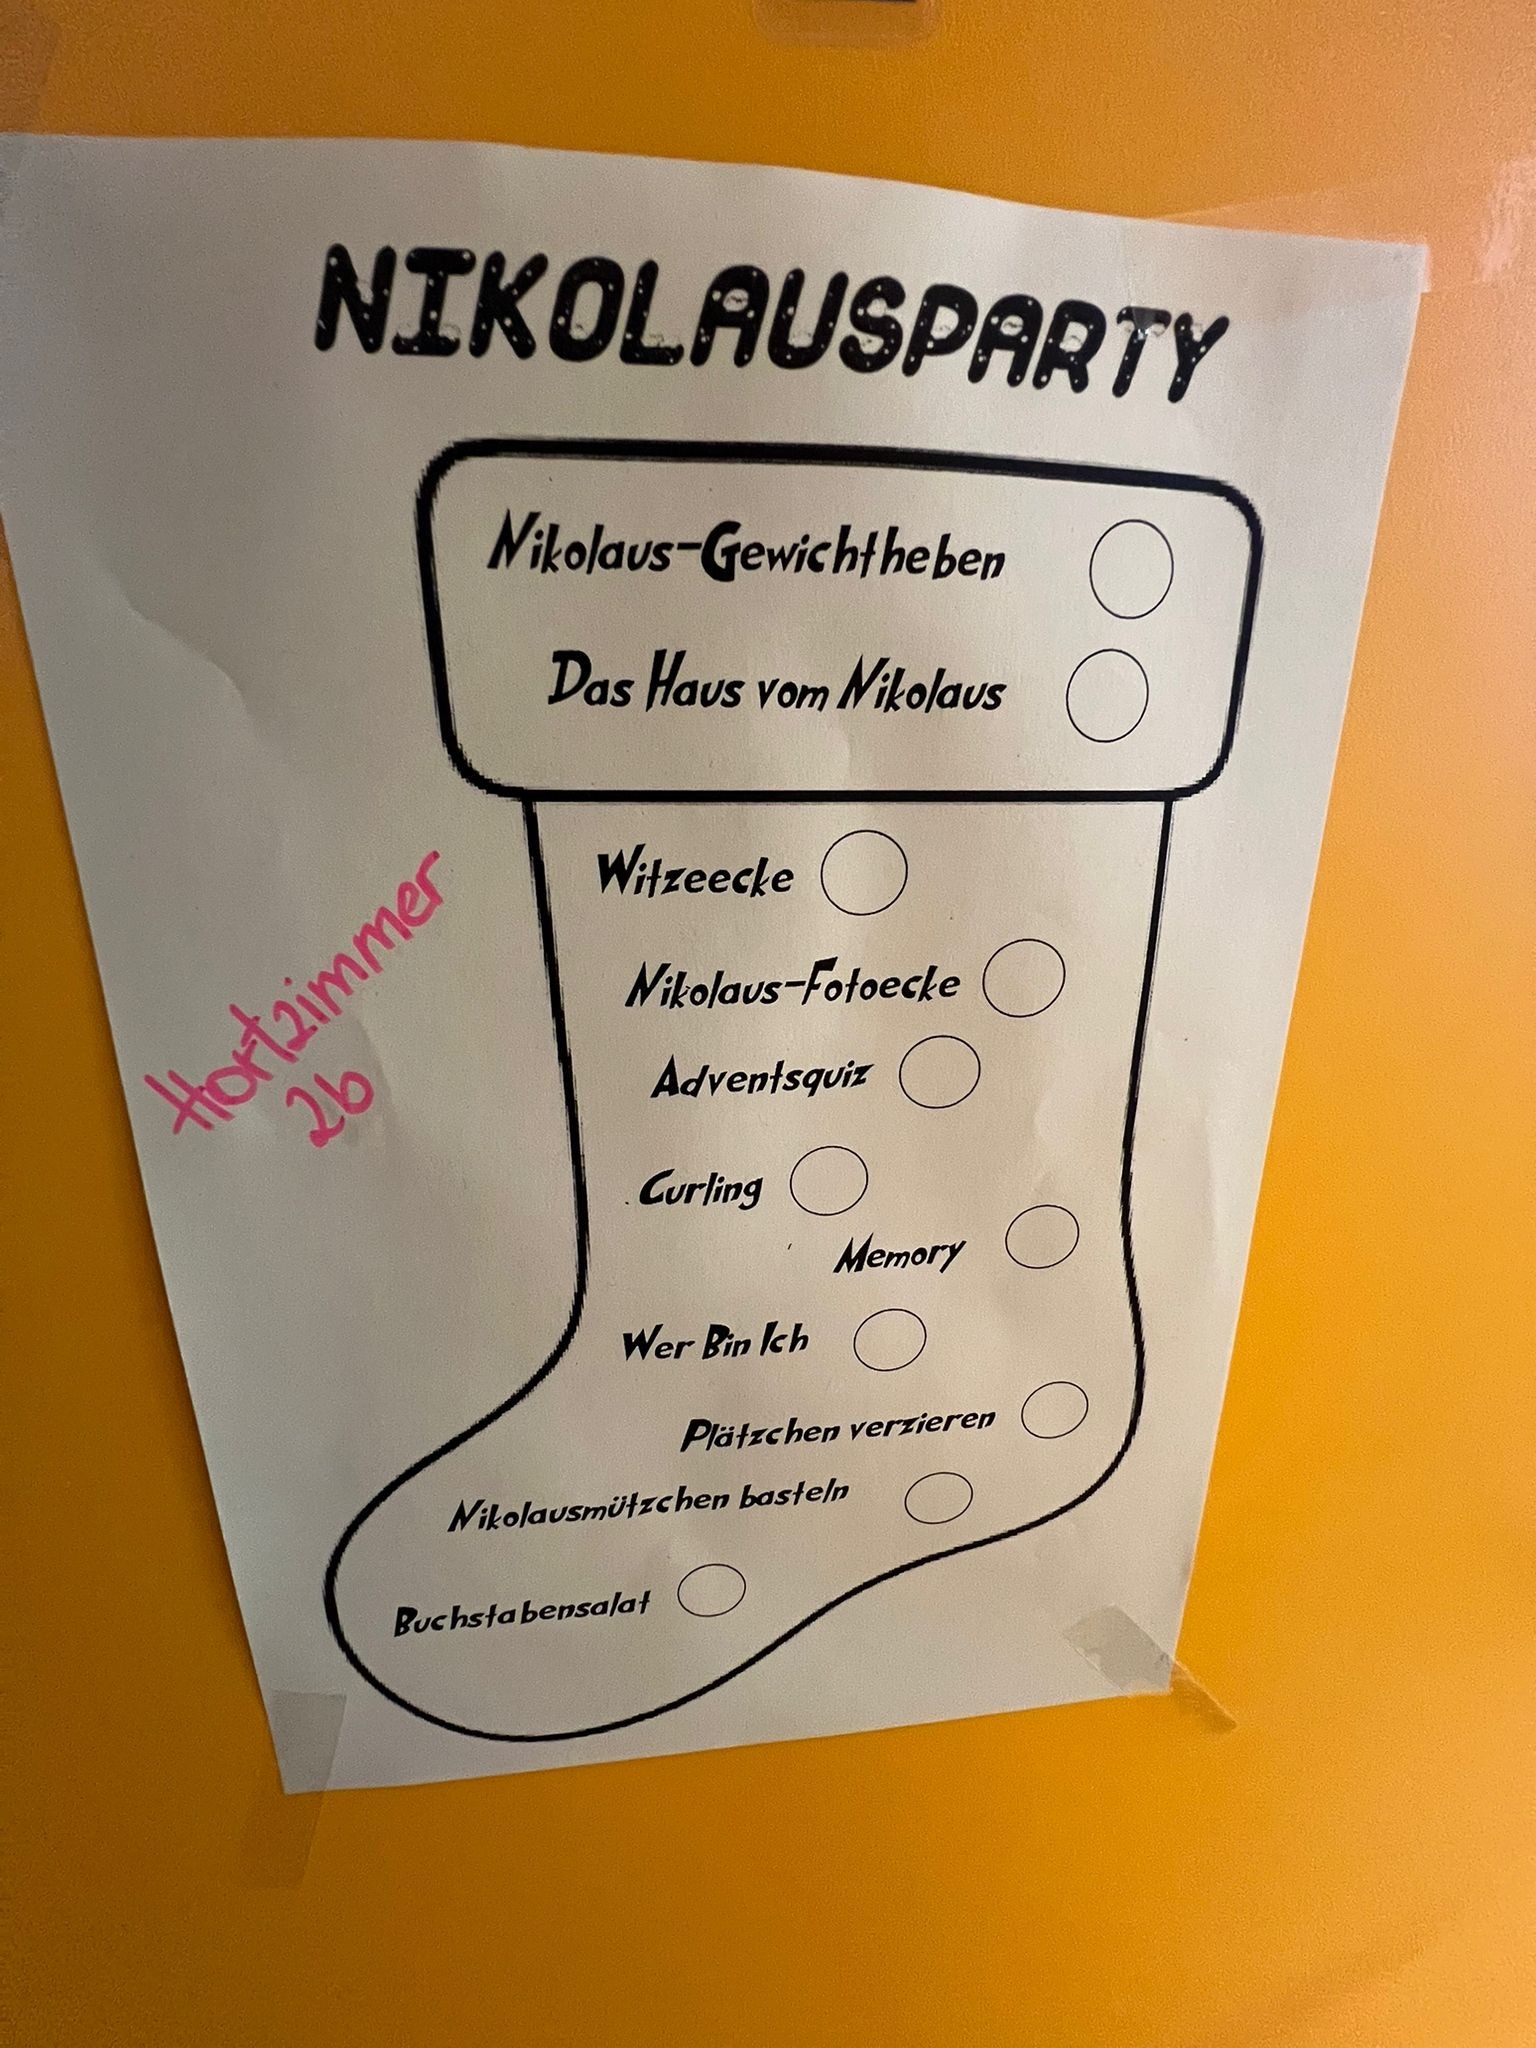 NIKOLAUSPARTY
Nikolaus-Gewichtheben
Das Haus vom Nikolaus
Witzeecke
Nikolaus-Fotoecke
Adventsquiz
Curling
Memory
Wer Bin Ich
Plätzchen verzieren
Nikolausmützchen basteln
Buchstabensalat
Hortzimmer
2b